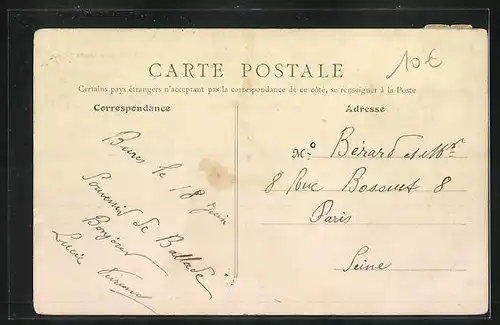 10€
CARTE POSTALE
Certains pays étrangers n'acceptant pas la correspondance de ce côté, se renseigner à la Poste
Correspondance
Adresse
Bures le 18 Juin
Souvenir de Ballade
Bonjour
Lucie
Mº Bérard et Mr
8 Rue Bossuet 8
Paris
Seine